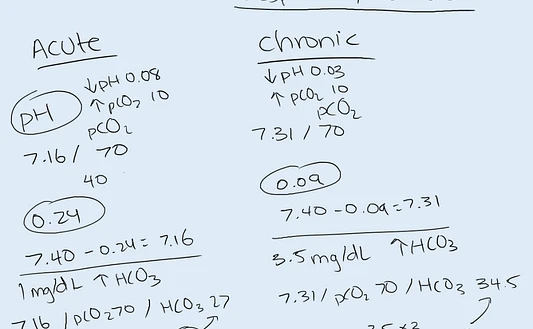 Acute
↓pH 0.08
↑pCO2 10
pH
pCO2
7.16 / 70
40
0.24
7.40 - 0.24 = 7.16
1 mg/dL ↑HCO3
7.16 / pCO2 70 / HCO3 27
chronic
↓pH 0.03
↑pCO2 10
pCO2
7.31 / 70
0.09
7.40 - 0.09 = 7.31
3.5 mg/dL ↑HCO3
7.31 / pCO2 70 / HCO3 34.5